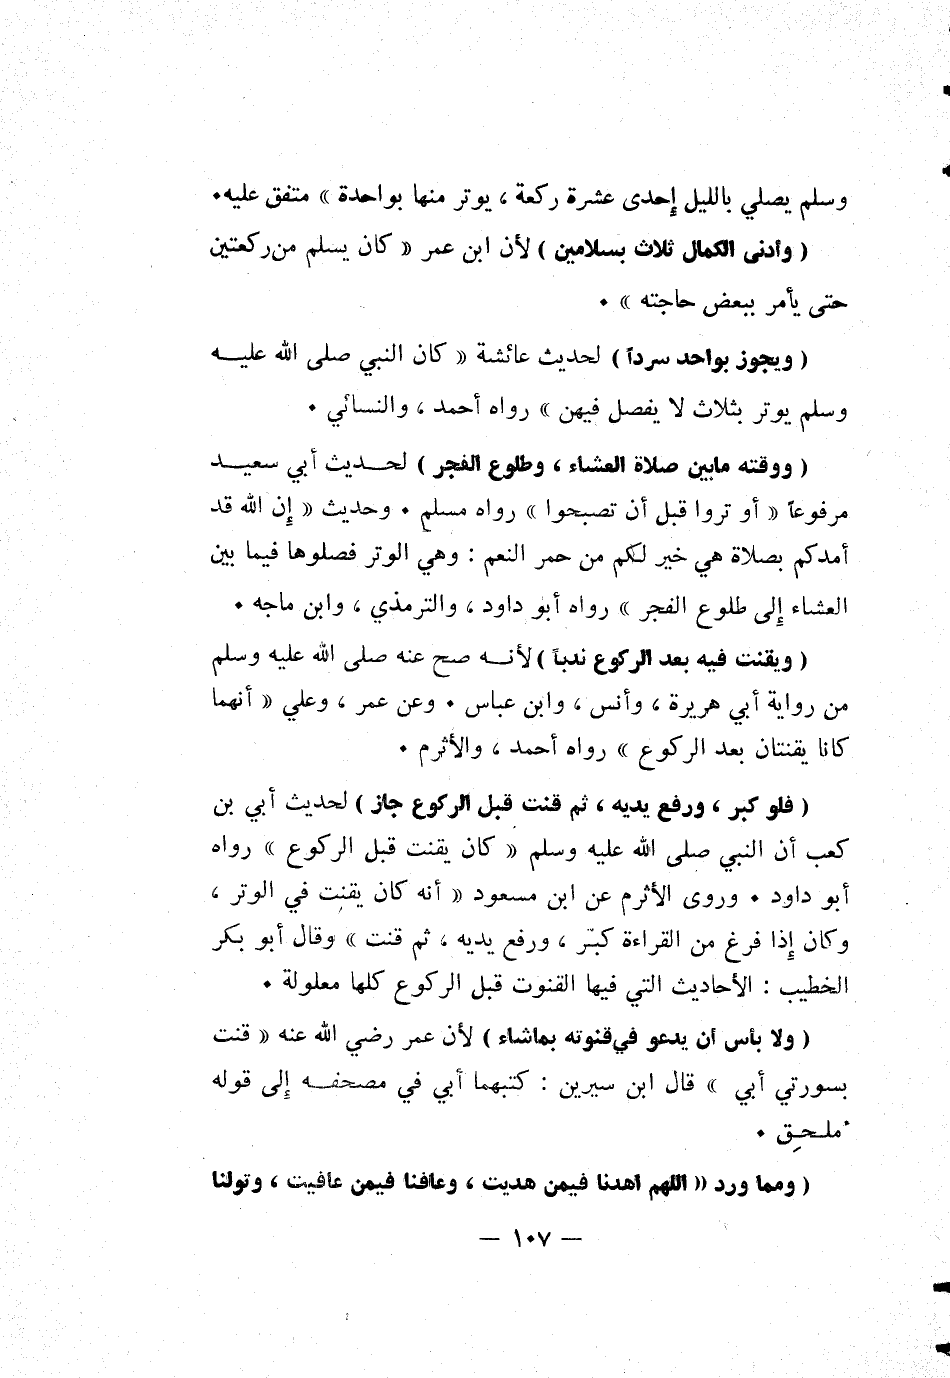 وسلم يصلي بالليل إحدى عشرة ركعة ، يوتر منها بواحدة » متفق عليه٠
( وأدنى الكمال ثلاث بسلامين ) لأن ابن عمر « كان يسلم من ركعتين
حتى يأمر ببعض حاجته » ٠
( ويجوز بواحد سرداً ) لحديث عائشة « كان النبي صلى الله عليه
وسلم يوتر بثلاث لا يفصل فيهن » رواه أحمد ، والنسائي ٠
( ووقته مابين صلاة العشاء ، وطلوع الفجر ) لحديث أبي سعيد
مرفوعاً « أو تروا قبل أن تصبحوا » رواه مسلم ٠ وحديث « إن الله قد
أمدكم بصلاة هي خير لكم من حمر النعم : وهي الوتر فصلوها فيما بين
العشاء إلى طلوع الفجر » رواه أبو داود ، والترمذي ، وابن ماجه ٠
( ويقنت فيه بعد الركوع ندباً ) لأنه صح عنه صلى الله عليه وسلم
من رواية أبي هريرة ، وأنس ، وابن عباس ٠ وعن عمر ، وعلي « أنهما
كانا يقنتان بعد الركوع » رواه أحمد ، والأثرم ٠
( فلو كبر ، ورفع يديه ، ثم قنت قبل الركوع جاز ) لحديث أبي بن
كعب أن النبي صلى الله عليه وسلم « كان يقنت قبل الركوع » رواه
أبو داود ٠ وروى الأثرم عن ابن مسعود « أنه كان يقنت في الوتر ،
وكان إذا فرغ من القراءة كبّر ، ورفع يديه ، ثم قنت » وقال أبو بكر
الخطيب : الأحاديث التي فيها القنوت قبل الركوع كلها معلولة ٠
( ولا بأس أن يدعو في قنوته بماشاء ) لأن عمر رضي الله عنه « قنت
بسورتي أبي » قال ابن سيرين : كتبهما أبي في مصحفه إلى قوله
مُلحِق ٠
( ومما ورد « اللهم اهدنا فيمن هديت ، وعافنا فيمن عافيت ، وتولنا
— ١٠٧ —